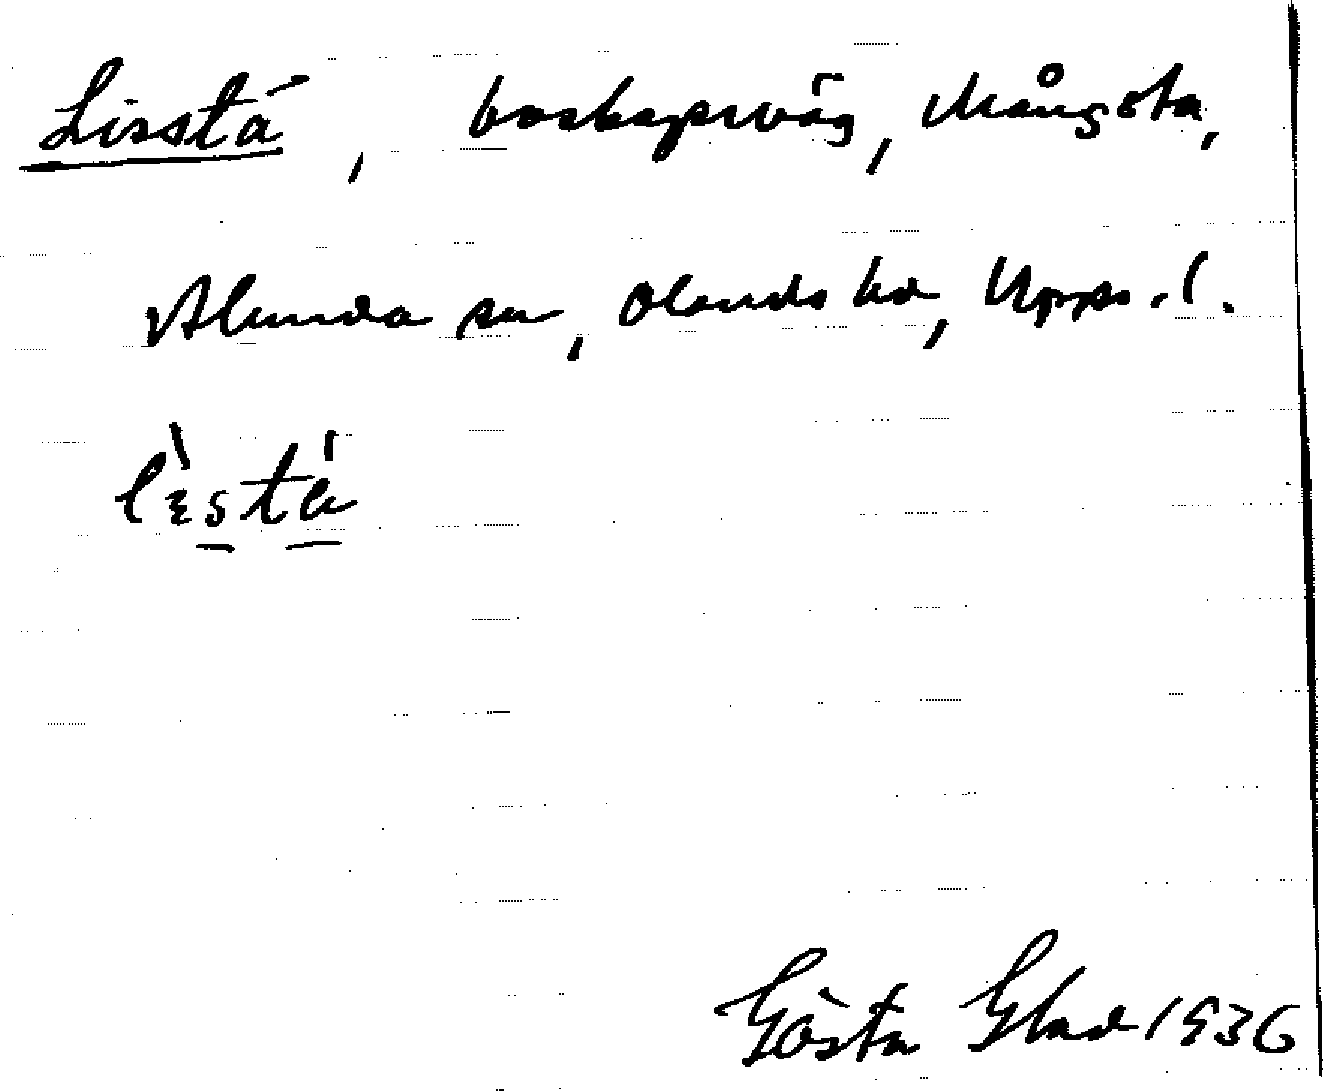 Lisstá, boskapsväg, Mångsta,
Alunda sn, Olands hd, Upps. l.
lɩ̀stá
Gösta Glad 1936